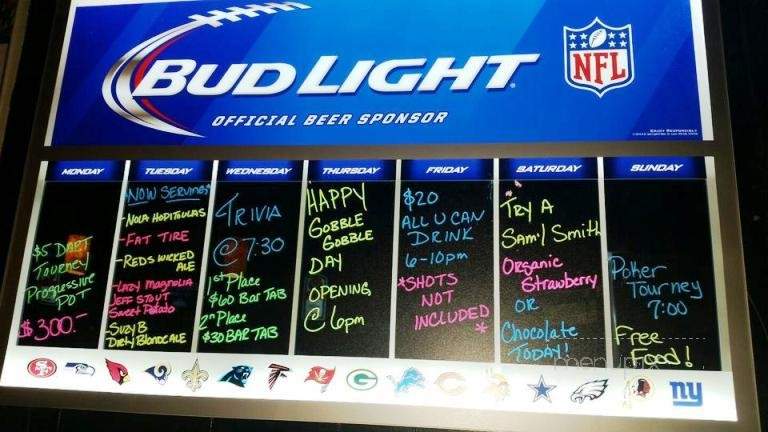 BUD LIGHT
OFFICIAL BEER SPONSOR
NFL
ENJOY RESPONSIBLY
MONDAY
$5 DART
Tourney
Progressive
POT
$300.-
TUESDAY
NOW SERVING
-NOLA HOPITOULAS
-FAT TIRE
-REDS WICKED
ALE
-LAZY MAGNOLIA
JEFF STOUT
Sweet Potato
-SUZY B
DIRTY BLONDE ALE
WEDNESDAY
TRIVIA
@7:30
1st Place
$60 BAR TAB
2nd Place
$30 BAR TAB
THURSDAY
HAPPY
GOBBLE
GOBBLE
DAY
OPENING
@ 6pm
FRIDAY
$20
ALL U CAN
DRINK
6-10pm
*SHOTS
NOT
INCLUDED
*
SATURDAY
TRY A
SAM'l SMITH
ORGANIC
Strawberry
OR
Chocolate
TODAY!
SUNDAY
Poker
Tourney
7:00
Free
Food!
SF
ny